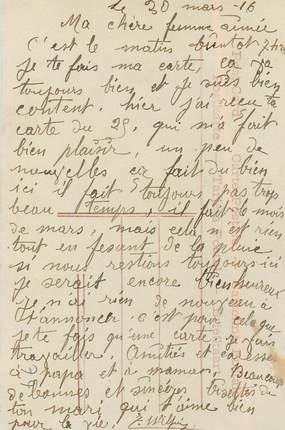 Le 30 mars - 16
Ma chère femme aimée
C'est le matin bientôt 7 hres
je te fais ma carte, ça va
toujours bien et je suis bien
content. hier j'ai reçu ta
carte du 25, qui m'a fait
bien plaisir, un peu de
nouvelles ça fait du bien
ici il fait toujours pas trop
beau temps, il fait le mois
de mars, mais cela n'est rien
tout en fesant de la pluie
si nous restions toujours ici
je serait encore bien heureux
je n'ai rien de nouveau à
t'annoncer. c'est pour cela que
je te fais qu'une carte je vais
travailler. Amitiés et caresses
à papa et maman. Beaucoup
de bonnes et sincères bisettes de
ton mari qui t'aime bien
pour la vie.